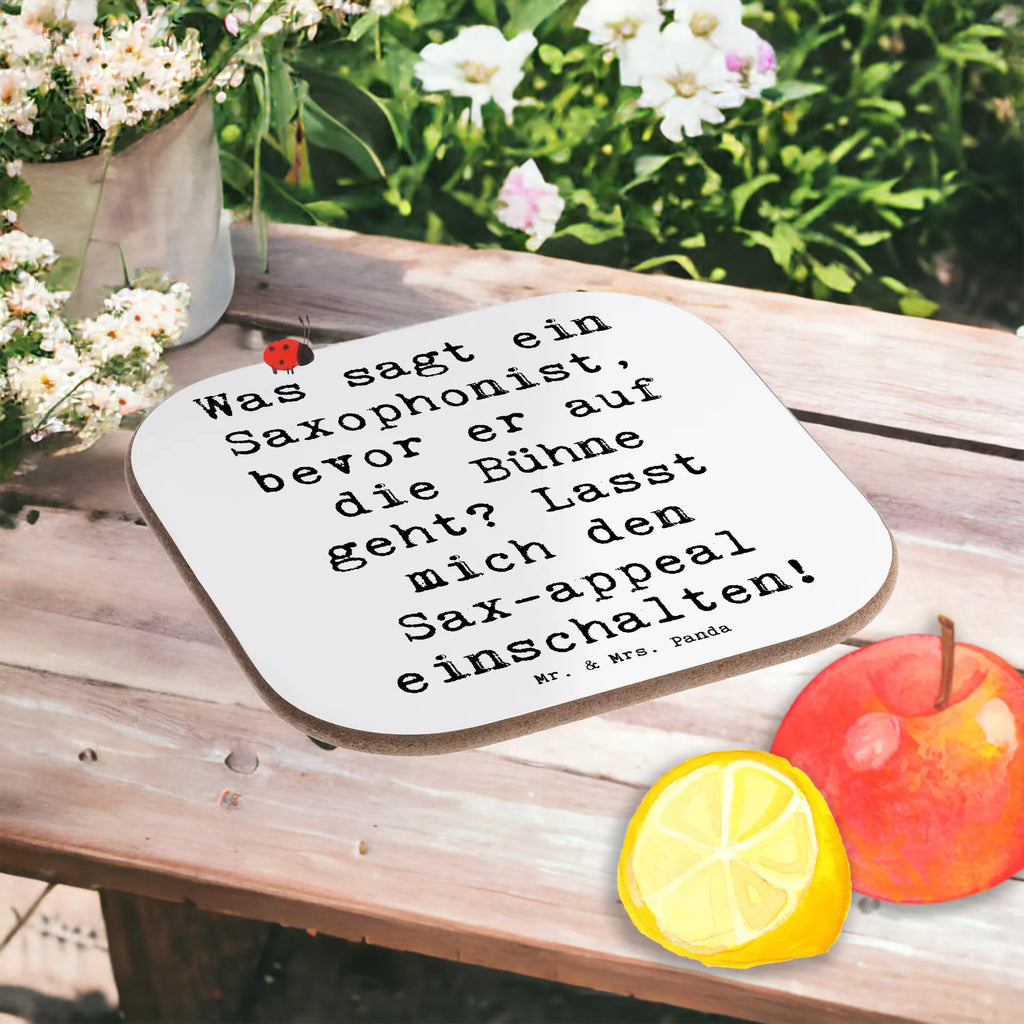 Was sagt ein
Saxophonist,
bevor er auf
die Bühne
geht? Lasst
mich den
Sax-appeal
einschalten!
Mr. & Mrs. Panda